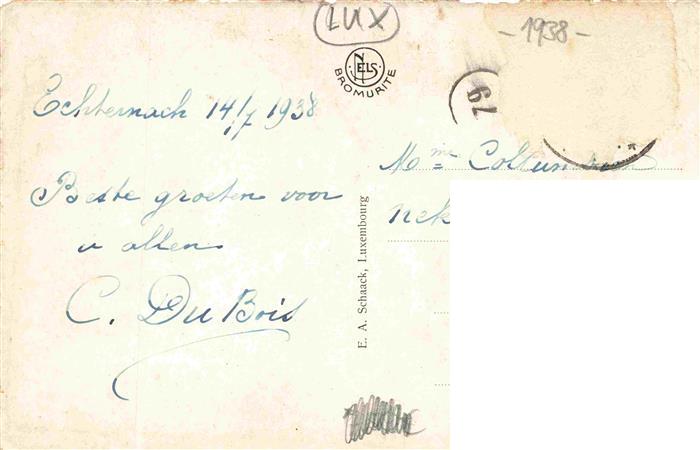 LUX
- 1938 -
NELS
BROMURITE
67
Echternach 14/7 1938
Mme
Beste groeten voor
u allen
C. Du Bois
nek
E. A. Schaack, Luxembourg